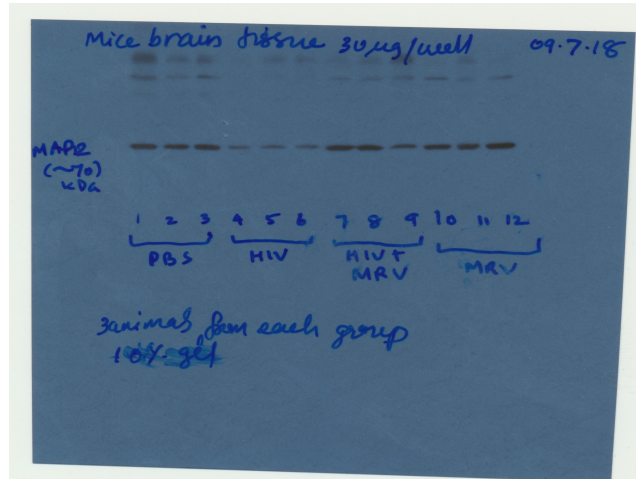 Mice brain tissue 30 µg/well 09.7.18
MAP2
(~70)
kDa
1 2 3 4 5 6 7 8 9 10 11 12
PBS HIV HIV+ MRV
MRV
3animals from each group
10% gel